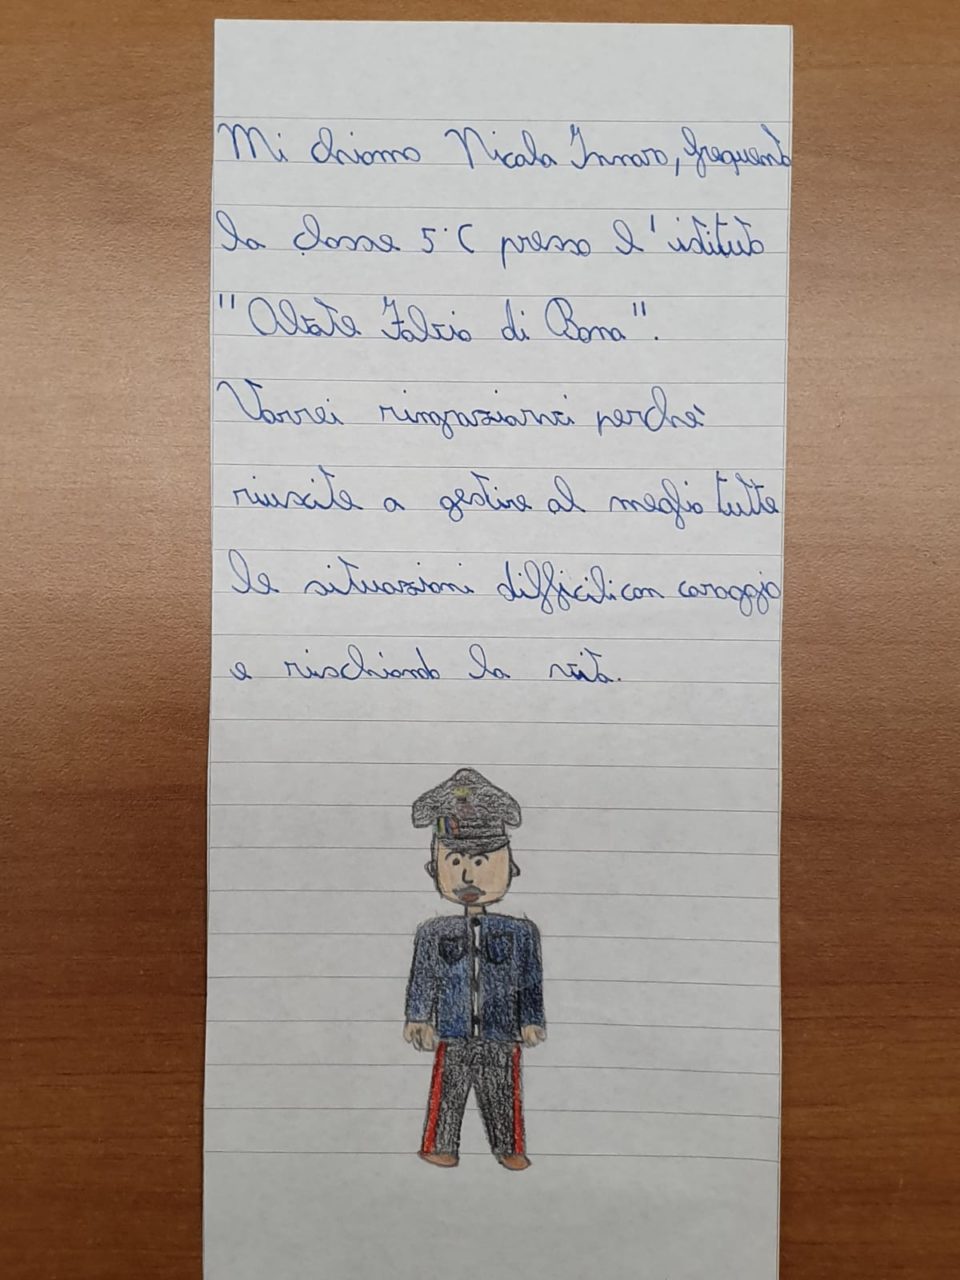 Mi chiamo Nicola Innaro, frequento
la classe 5°C presso l'istituto
"Abate Fabio di Bona".
Vorrei ringraziarvi perché
riuscite a gestire al meglio tutte
le situazioni difficili con coraggio
e rischiando la vita.